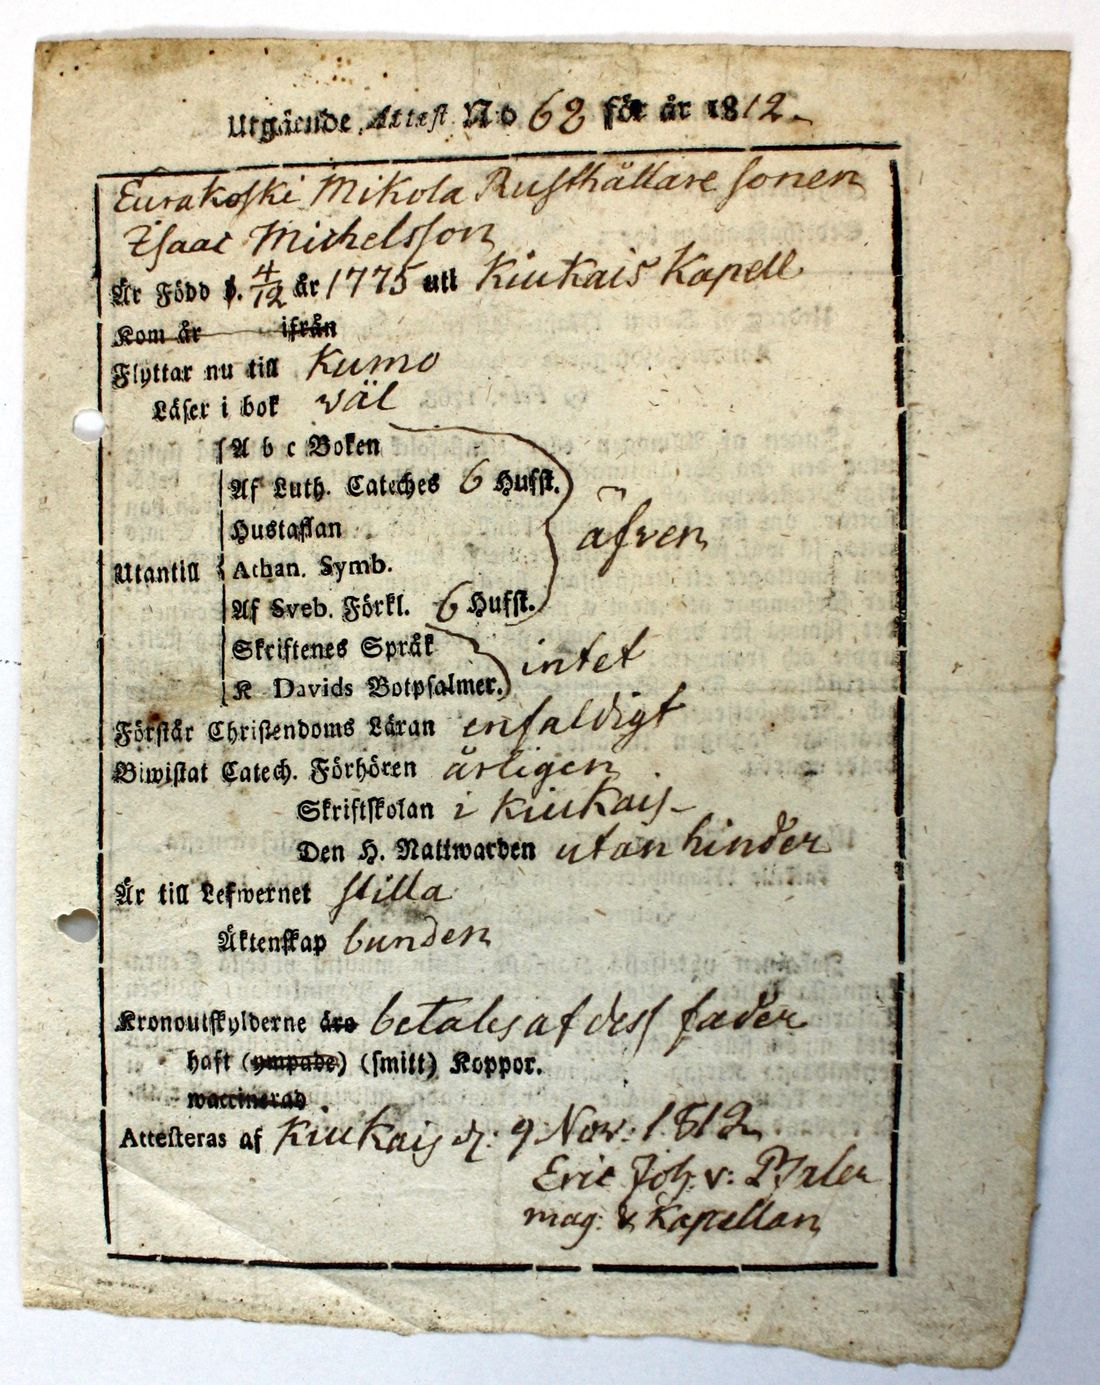 Utgående Attest No 62 för år 1812.
Eurakoski Mikola Rusthållare sonen
Isaac Michelsson
Är Född d. 4/12 år 1775 uti Kiukais Kapell
Kom år ifrån
Flyttar nu till Kumo
Läser i bok wäl
A b c Boken
Af Luth. Cateches 6 Hufst.
Hustaflan
äfven
Utantill
Athan. Symb.
Af Sveb. Förkl. 6 Hufst.
Skriftenes Språk
intet
K Davids Botpsalmer.
Förstår Christendoms Läran enfaldigt
Biwistat Catech. Förhören årligen
Skriftskolan i Kiukais
Den H. Nattwarden utan hinder
Är till Lefwernet stilla
Äktenskap bunden
Kronoutskylderne äro betales af dess fader
haft (ympade) (smitt) Koppor.
waccinerad.
Attesteras af Kiukais d: 9 Nov: 1812
Eric Joh: v: Pfaler
mag: & Kapellan